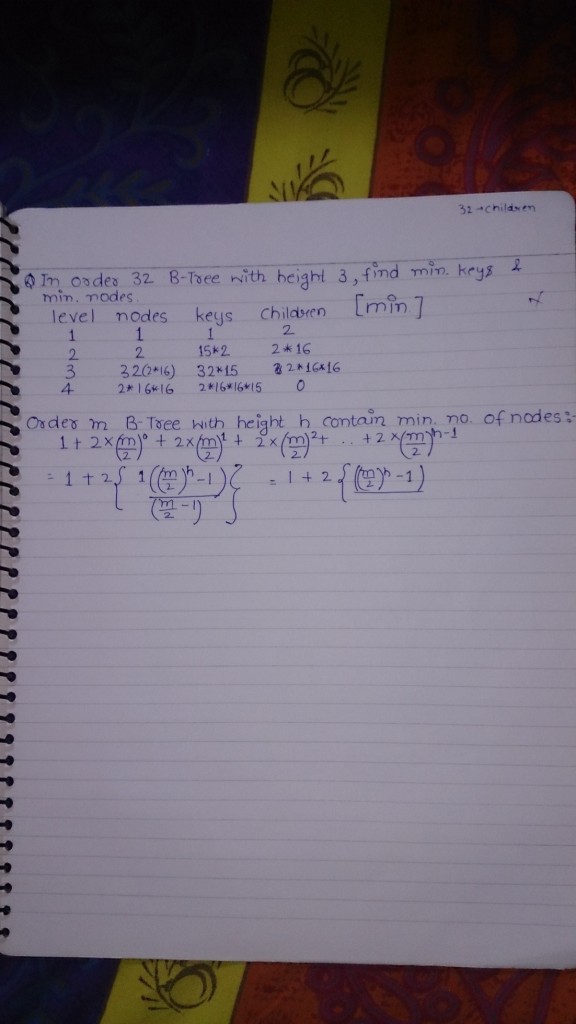 32→children
Q In order 32 B-Tree with height 3, find min. keys &
min. nodes.
level nodes keys children [min]
1 1 1 2
2 2 15*2 2*16
3 32(2*16) 32*15 2*16*16
4 2*16*16 2*16*16*15 0
Order m B-Tree with height h contain min. no. of nodes:-
1 + 2×(m/2)⁰ + 2×(m/2)¹ + 2×(m/2)²+ .. +2×(m/2)ʰ⁻¹
= 1 + 2{ 1((m/2)ʰ-1) / (m/2 -1) } = 1 + 2 {((m/2)ʰ -1)